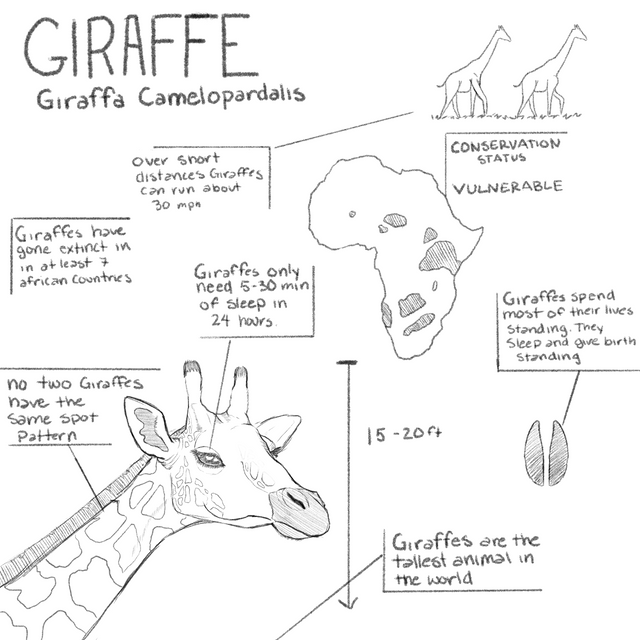 GIRAFFE
Giraffa Camelopardalis
over short
distances Giraffes
can run about
30 mph
CONSERVATION
STATUS
VULNERABLE
Giraffes have
gone extinct in
in at least 7
african countries
Giraffes only
need 5-30 min
of sleep in
24 hours.
Giraffes spend
most of their lives
standing. They
Sleep and give birth
standing
no two Giraffes
have the
same spot
pattern
15-20ft
Giraffes are the
tallest animal in
the world